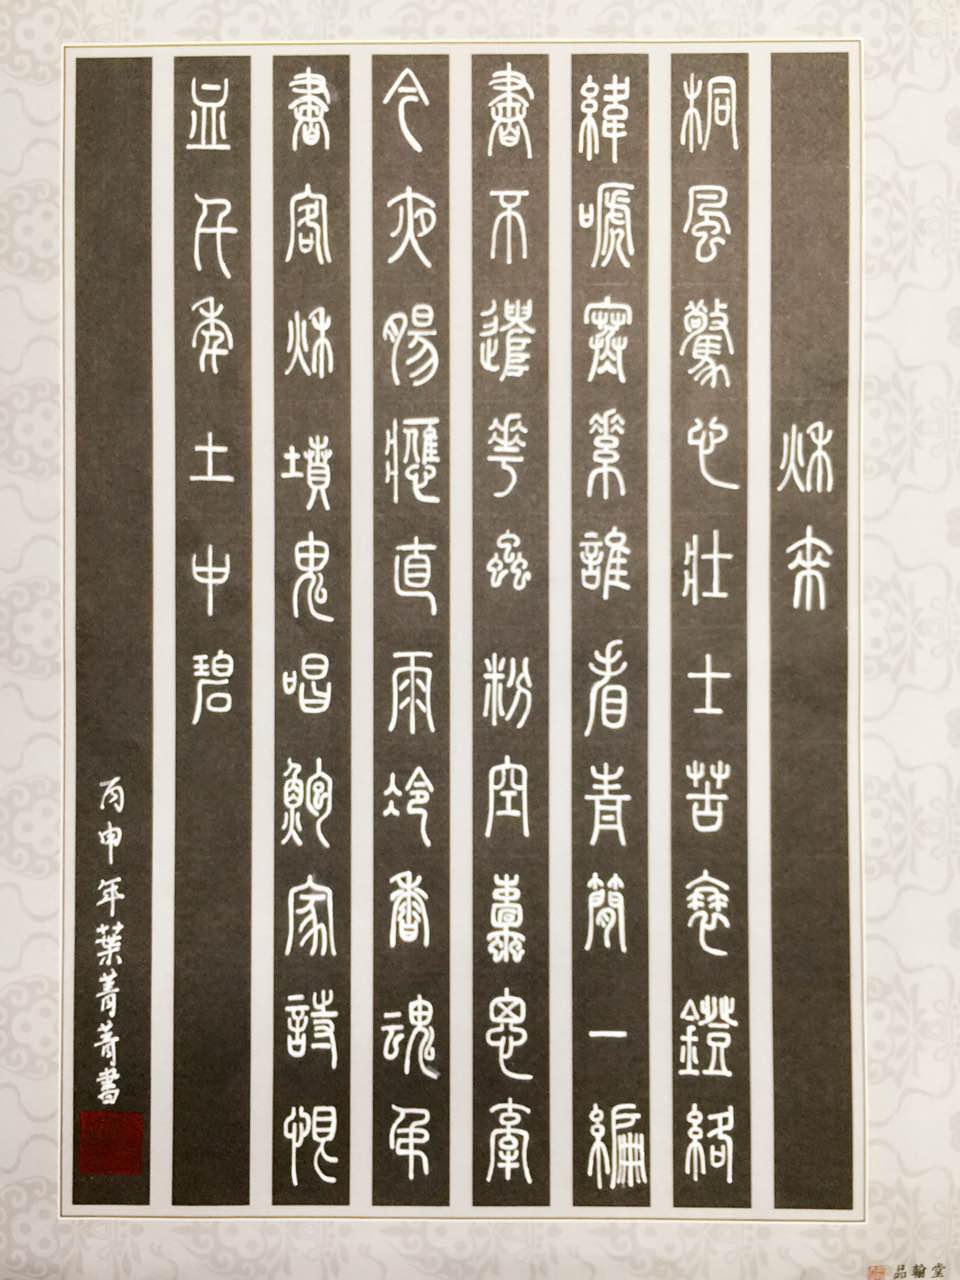 秋來
桐風驚心壯士苦衰鐙絡
緯嗁寒素誰看青簡一編
書不遣花蟲粉空蠹思牽
今夜腸應直雨冷香魂弔
書客秋墳鬼唱鮑家詩恨
血千年土中碧
丙申年葉菁菁書
品翰堂